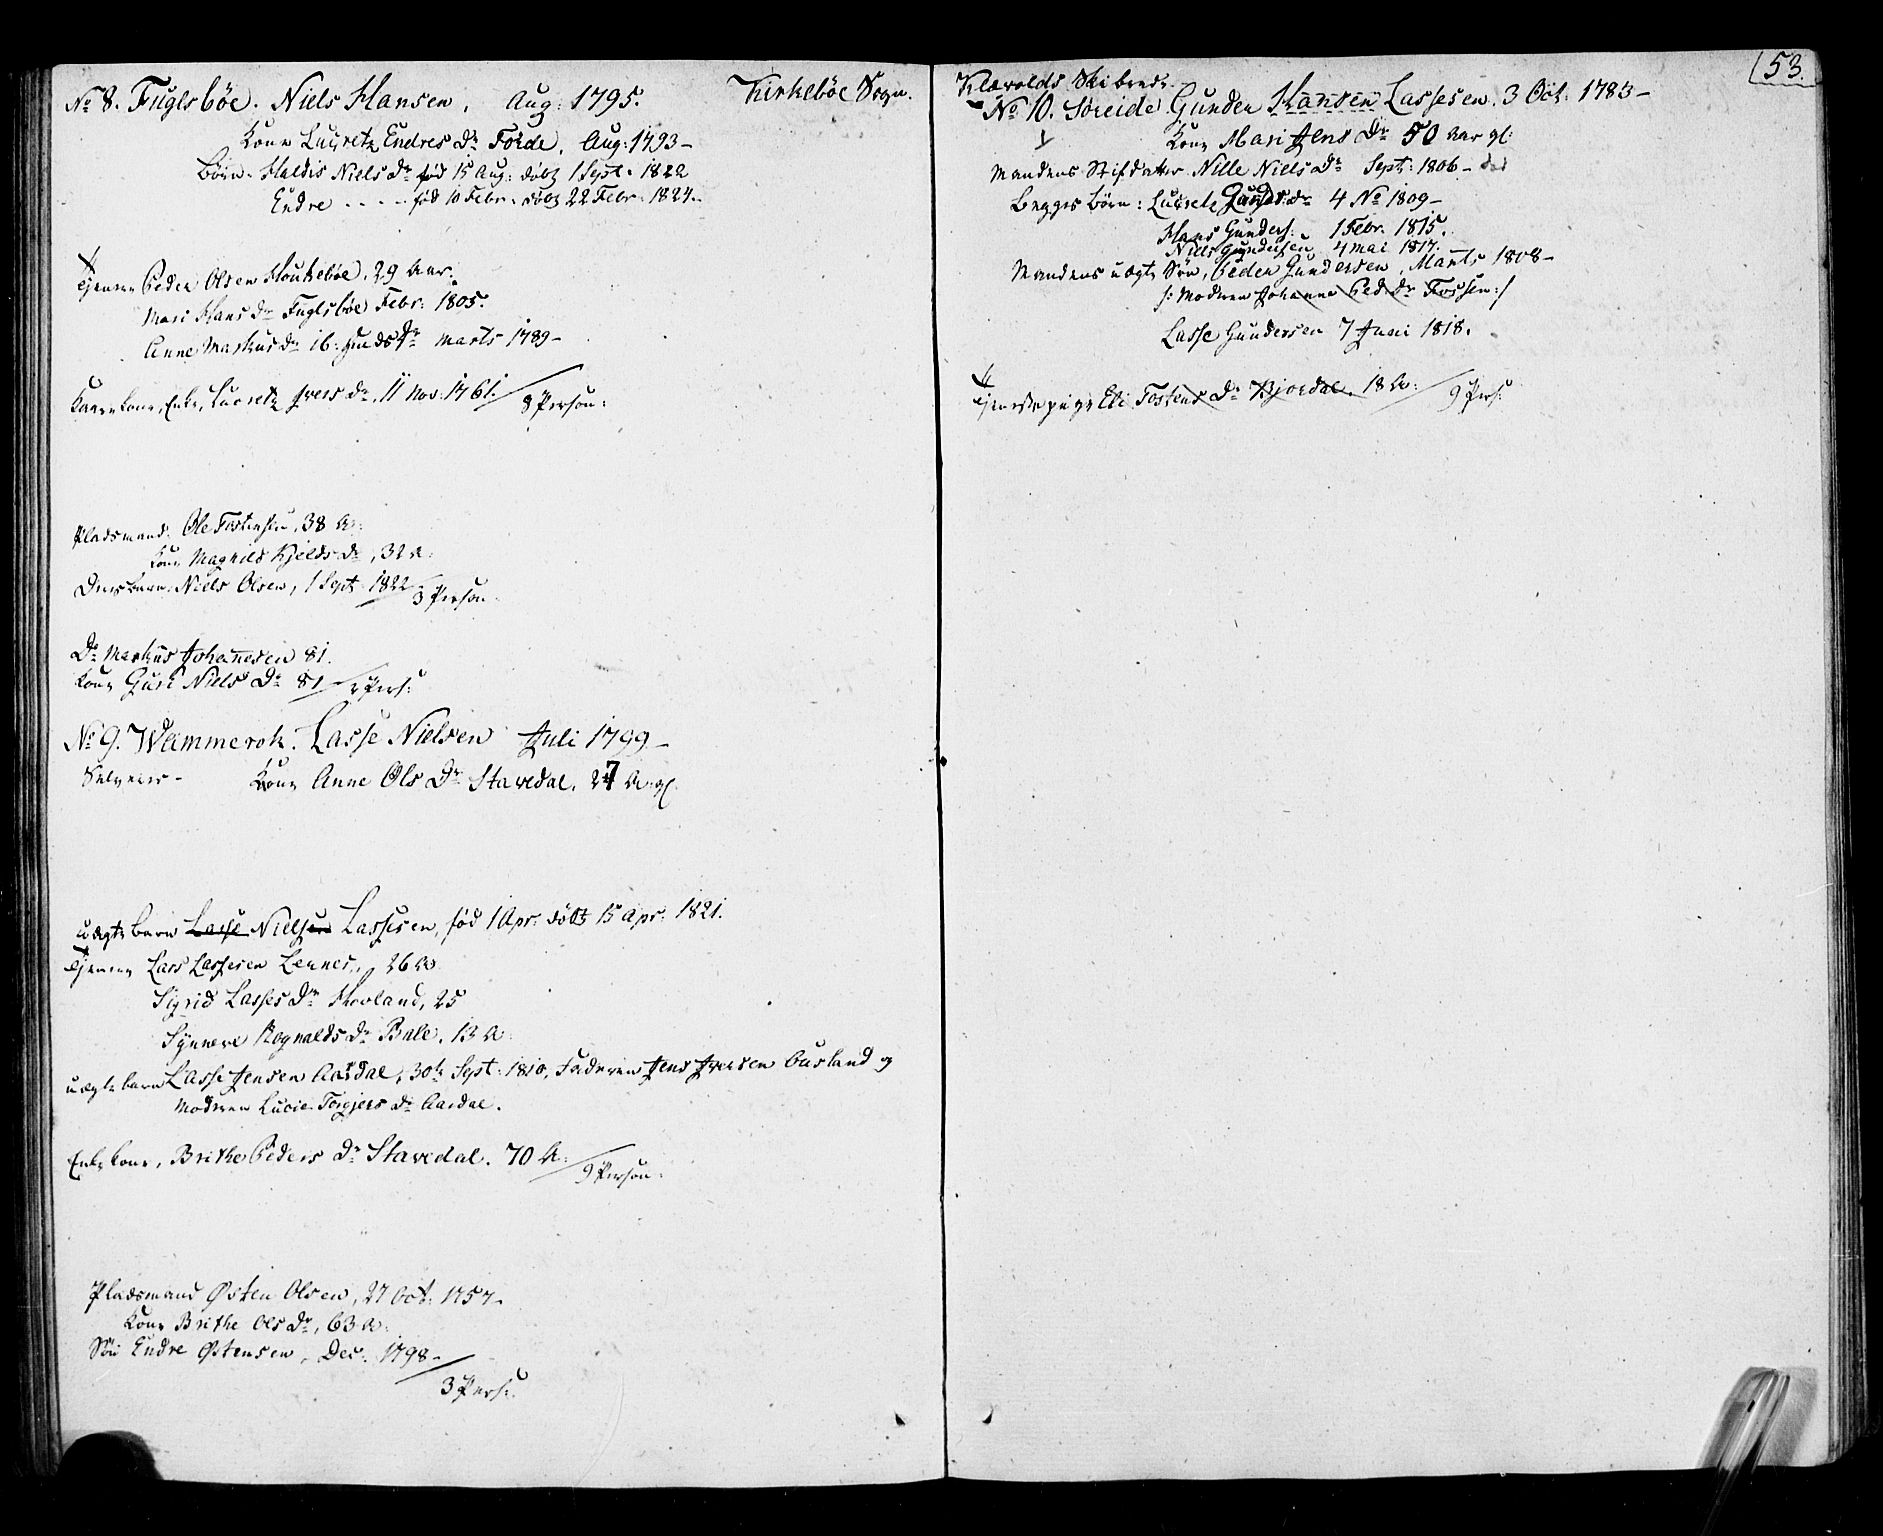 No 8. Fuglsböe. Niels Hansen, Aug: 1795. Kirkeböe Sogn.
Kone Lucretz Endres Dr Förde, Aug: 1793 –
Börn. Haldis Niels Dr född 15 Aug: döbt 1 Sept. 1822
Endre - - - - född 10 Febr. döbt 22 Febr. 1824.
Tjenere Peder Olsen Houkeböe, 29 Aar.
Mari Hans Dr Fuglsböe Febr: 1805.
Anne Markus Dr ib: Marts 1789 –
Kaarekone, Enke, Lucretz Ivers Dr, 11 Nov: 1761. / 8 Person:
Pladsmand. Ole Tostensen, 38 A:
Kone Magnild Kjelds Dr, 32 A:
Deres barn: Niels Olsen, 1 Sept. 1822 / 3 Person.
Do Markus Johanesen 81.
Kone Guri Niels Dr 81 / 2 Pers:
No 9. Wammerok. Lasse Nielsen Juli 1799 –
Selveier – Kone Anne Ols Dr Stavedal, 27 A: gl.
uægte barn Lasse Nielsen Lassesen, föd 1 Apr: döbt 15 Apr: 1821.
Tjenere Lars Lassesen Lennes, 26 A
Sigrid Lasses Dr Hovland, 25
Synneve Rognalds Dr Bale, 13 A:
uægte barn Lasse Jensen Aardal, 30te Sept: 1810, Faderen Jens Iversen Ousland og
Moderen Lucie Torgjers Dr Aardal.
Enkekone, Brithe Peders Dr Stavedal. 70 A: / 9 Person:
Pladsmand Østen Olsen, 27 Oct: 1757 –
Kone Brithe Ols Dr, 63 A:
Sön Endre Østensen, Dec: 1798 –
3 Pers:
53.
Klævolds Skibrede.
No 10. Söreide Gunder Hansen Lassesen. 3 Oct. 1783 –
Kone Mari Jens Dr 50 Aar gl:
Mandens Stifdatter Nille Niels Dr Sept: 1806 –
Begges Börn: Lucretz Gunders Dr 4 No 1809 –
Hans Gunders: 1 Febr. 1815.
Niels Gundersen 4 Mai 1817.
Mandens uægte Sön, Peder Gundersen, Marts 1808 –
/: Moderen Johanne Ped: Dr Fossen :/
Lasse Gundersen 7 Juni 1818.
Tjenestepige Eli Tostens Dr Bjordal, 18 A: / 9 Pers: